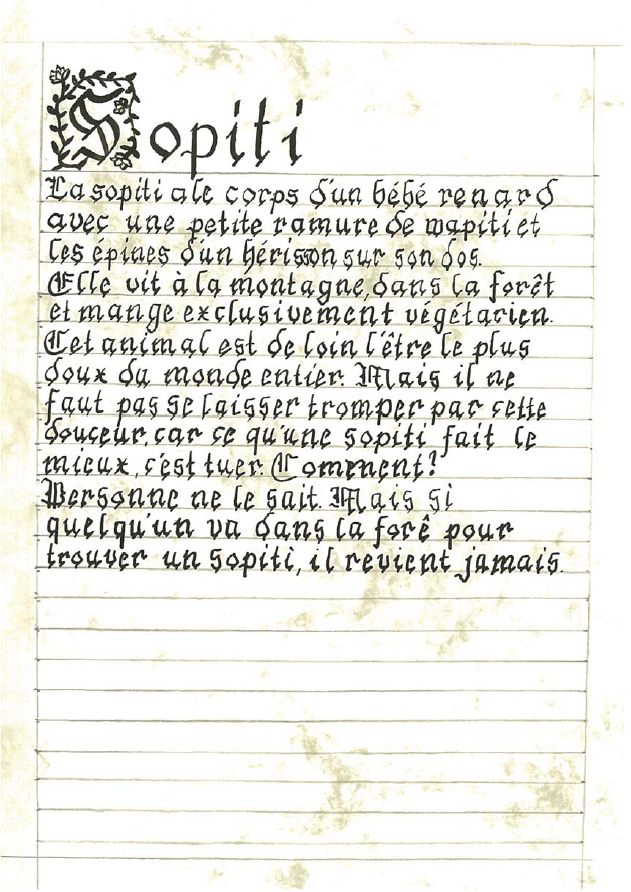 Sopiti
La sopiti a le corps d'un bébé renard
avec une petite ramure de wapiti et
les épines d'un hérisson sur son dos.
Elle vit à la montagne, dans la forêt
et mange exclusivement végétarien.
Cet animal est de loin l'être le plus
doux da monde entier. Mais il ne
faut pas se laisser tromper par cette
douceur, car ce qu'une sopiti fait le
mieux, c'est tuer. Comment?
Personne ne le sait. Mais si
quelqu'un va dans la forê pour
trouver un sopiti, il revient jamais.